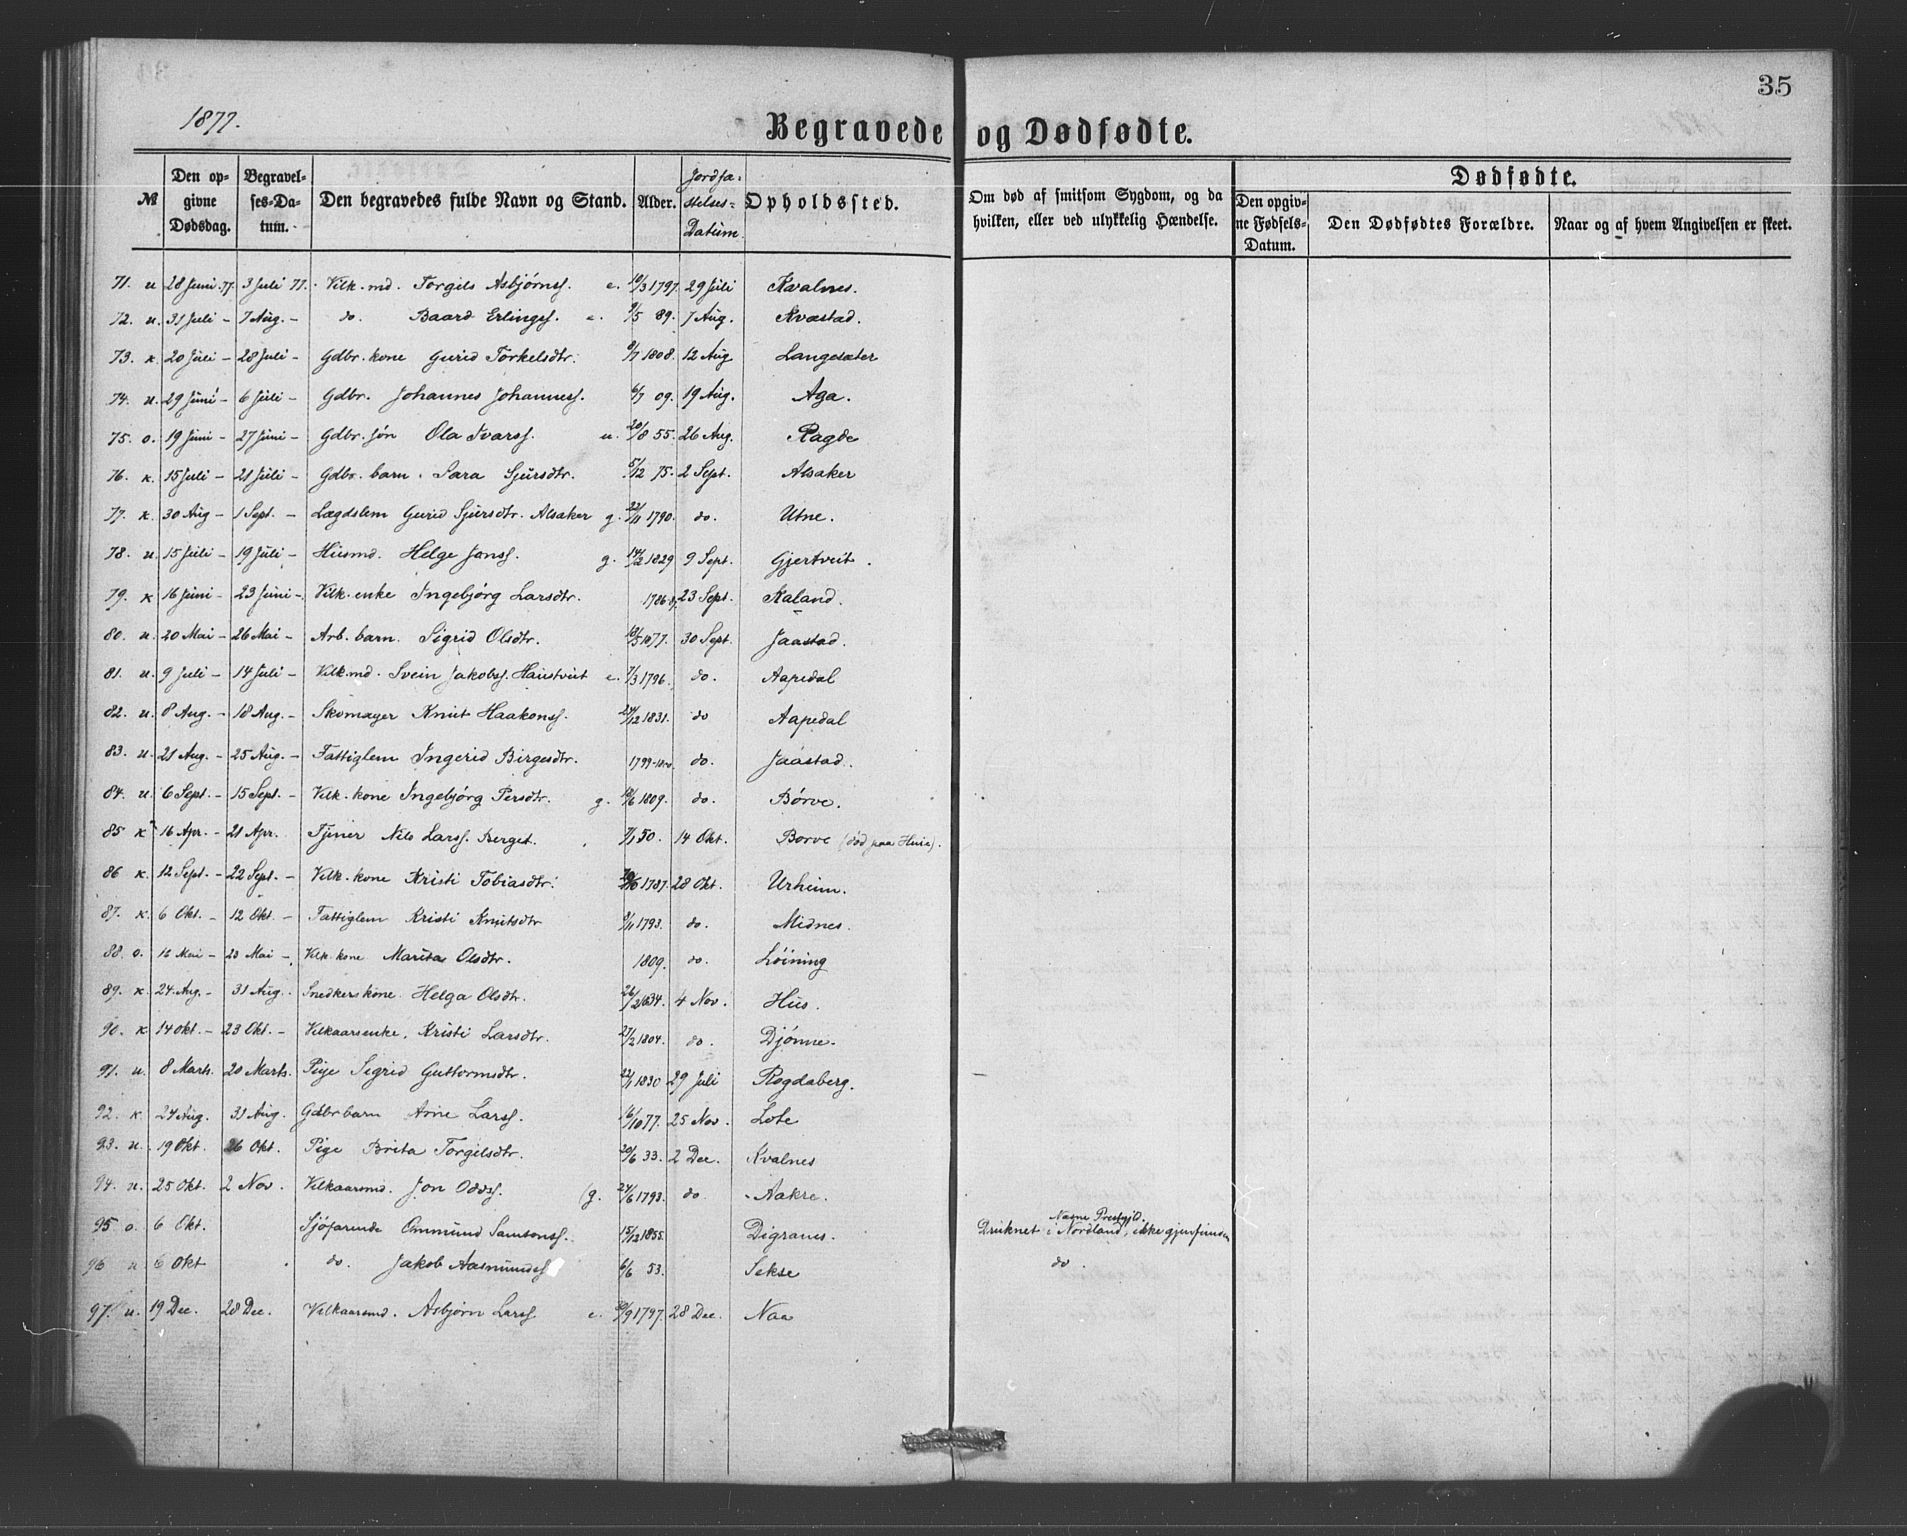 35
1877.
Begravede og Dødfødte.
№
Den opgivne Dødsdag.
Begravelses-Datum.
Den begravedes fulde Navn og Stand.
Alder.
Jordfæstelses-Datum.
Opholdssted.
Om død af smitsom Sygdom, og da hvilken, eller ved ulykkelig Hændelse.
Dødfødte.
Den opgivne Fødsels-Datum.
Den Dødfødtes Forældre.
Naar og af hvem Angivelsen er skeet.
71. u 28 Juni 77. 3 Juli 77. Vilk. md. Torgils Asbjørns. e. 10/3 1797. 29 Juli Kvalnes.
72. u. 31 Juli – 7 Aug. – do. Baard Erlings. e. 9/5 89. 7 Aug. Kvæstad.
73. k. 20 Juli – 28 Juli – Gdbr. kone Gurid Torkelsdtr. 9/7 1808. 12 Aug Langesæter
74. u. 29 Juni – 6 Juli – Gdbr. Johannes Johanness. 6/7 09. 19 Aug. Aga.
75. o. 19 Juni – 27 Juni – Gdbr. søn Ola Ivars. u. 20/8 55. 26 Aug. Ragde
76. k. 15 Juli – 21 Juli – Gdbr. barn. Sara Sjursdtr. 5/12 75. 2 Sept. Alsaker
77. k. 30 Aug – 1 Sept. – Lægdslem Gurid Sjursdtr. Alsaker g. 22/11 1790. do. Utne.
78. u. 15 Juli – 19 Juli – Husmd. Helge Jons. g. 14/2 1829 9 Sept. Gjertveit.
79. k 16 Juni – 23 Juni – Vilk. enke Ingebjørg Larsdtr. 1786 23 Sept. Kaland.
80. u. 20 Mai – 26 Mai – Arb. barn. Sigrid Olsdtr. 10/5 1877. 30 Sept. Jaastad.
81. u. 9 Juli – 14 Juli – Vilk. md. Svein Jakobs. Haustveit e. 7/3 1796. do. Aapedal
82. u. 8 Aug. – 18 Aug. – Skomager Knut Haakons. 24/12 1831. do Aapedal
83. u. 21 Aug. – 25 Aug. – Fattiglem Ingerid Birgesdtr. 1799- do. Jaastad.
84. u. 6 Sept. – 15 Sept. – Vilk. kone Ingebjørg Persdtr. g. 10/6 1809. do. Børve.
85 k 16 Apr. – 21 Apr. Tjener Nils Lars. Berget. 7/1 50. 14 Okt. Børve (død paa Huse).
86 k. 12 Sept. – 22 Sept. – Vilk. kone Kristi Tobiasdtr. 1787. 28 Okt. Urheim.
87. k. 6 Okt. – 12 Okt. – Fattiglem Kristi Knutsdtr 8/11 1793. do. Midnes.
88. o. 16 Mai – 23 Mai – Vilk. kone Marita Olsdtr. 1809. do. Løining
89. k. 24 Aug. – 31 Aug. Snedkerskone. Helga Olsdtr. 26/2 1834. 4 Nov. Hus.
90. k 14 Okt. – 23 Okt. – Vilkaarsenke. Kristi Larsdtr. 27/2 1804. do. Djønne.
91. u. 8 Marts. 20 Marts. Pige Sigrid Guttormsdtr. 22/11 1830 29 Juli Rogdaberg.
92. k 24 Aug. 31 Aug. Gdbr barn Arne Lars. 6/10 77. 25 Nov. Lote
93. u. 19 Okt. 26 Okt. Pige Brita Torgelsdtr. 20/6 33. 2 Dec. Kvalnes
94. u. 25 Okt. 2 Nov. Vilkaarsmd. Jon Odds. (g. 24/6 1793. do Aakre.
95 o. 6 Okt. Sjøfarende Ommund Samsons. 15/12 1855. Digranes. Druknet i Nordland, Nasne Prestgjld. ikke gjenfunden
96 u 6 Okt do. Jakob Aasmunds 6/6 53. Sekse do.
97. u. 19 Dec. 28 Dec. Vilkaarsmd. Asbjørn Lars e. 1797. 28 Dec. Naa